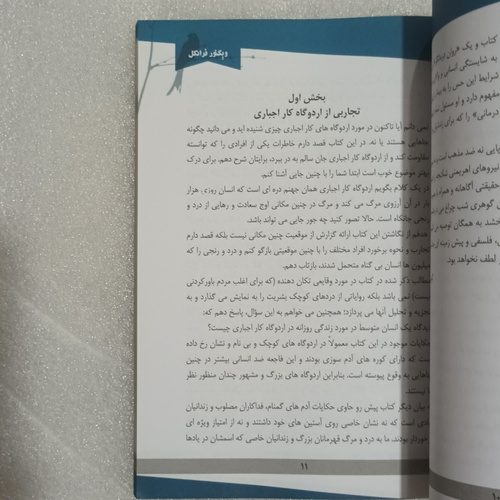 ویکتور فرانکل
بخش اول
تجاربی از اردوگاه کار اجباری
نمی دانم آیا تاکنون در مورد اردوگاه های کار اجباری چیزی شنیده اید و می دانید چگونه
جاهایی هستند یا نه. در این کتاب قصد دارم خاطرات یکی از افرادی را که توانسته
مقاومت کند و از اردوگاه کار اجباری جان سالم به در ببرد، برایتان شرح دهم. برای درک
بهتر موضوع خوب است ابتدا شما را با چنین جایی آشنا کنم.
در یک کلام بگویم اردوگاه کار اجباری همان جهنم دره ای است که انسان روزی هزار
بار در آن آرزوی مرگ می کند و مرگ در چنین مکانی اوج سعادت و رهایی از درد و
رنجی جانکاه است. حالا تصور کنید چه جور جایی می تواند باشد.
هدفم از نگاشتن این کتاب ارائه گزارش از موقعیت چنین مکانی نیست بلکه قصد دارم
تجارب و نحوه برخورد افراد مختلف را با چنین موقعیتی بازگو کنم و درد و رنجی را که
میلیون ها انسان بی گناه متحمل شدند، بازتاب دهم.
مطالب ذکر شده در کتاب در مورد وقایعی تکان دهنده (که برای اغلب مردم باورکردنی
نیست) نمی باشد بلکه روایاتی از دردهای کوچک بشریت را به نمایش می گذارد و به
تجزیه و تحلیل آنها می پردازد؛ همچنین می خواهم به این سؤال، پاسخ دهم که:
دیدگاه یک انسان متوسط در مورد زندگی روزانه در اردوگاه کار اجباری چیست؟
حکایات موجود در این کتاب معمولاً در اردوگاه های کوچک و بی نام و نشان رخ داده
است که دارای کوره های آدم سوزی بودند و این فاجعه ضد انسانی بیشتر در چنین
جاهایی به وقوع پیوسته است. بنابراین اردوگاه های بزرگ و مشهور چندان منظور نظر
نیستند.
به بیان دیگر کتاب پیش رو حاوی حکایات آدم های گمنام، فداکاران مصلوب و زندانیان
است که نه نشان خاصی روی آستین های خود داشتند و نه از امتیاز ویژه ای
برخوردار بودند. ما به درد و مرگ قهرمانان بزرگ و زندانیان خاصی که اسمشان در یادها
۱۱
کتاب و یک
به شایستگی
شرایط این حس را به
مفهوم دارد و او مسئول
درمانی» را که برای
نه ضد مذهب است
نیروهای اهریمنی
حقیقتی آگاهانه و همراه
گوهری شب چراغ می
به همگان توصیه
فلسفی و پیش زمینه
لطف نخواهد بود.